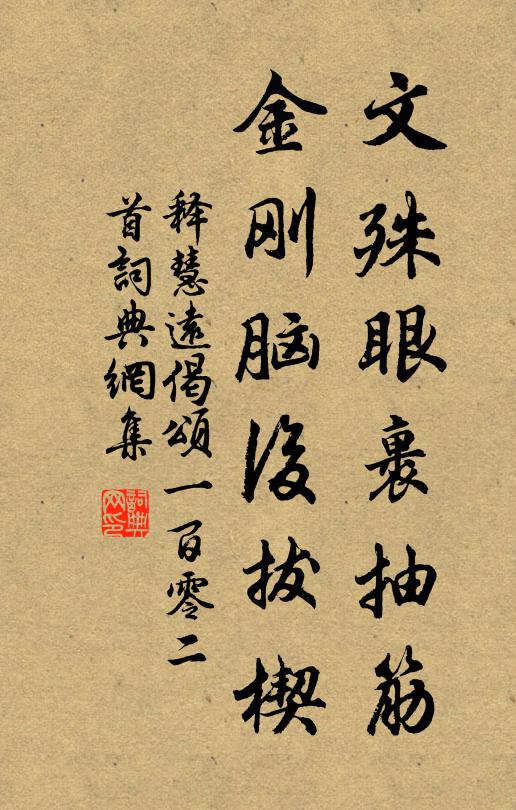 文殊眼裹抽筋
金刚脑後拔楔
释慧遠偈頌一百零二
首詞典網集
詞典网印